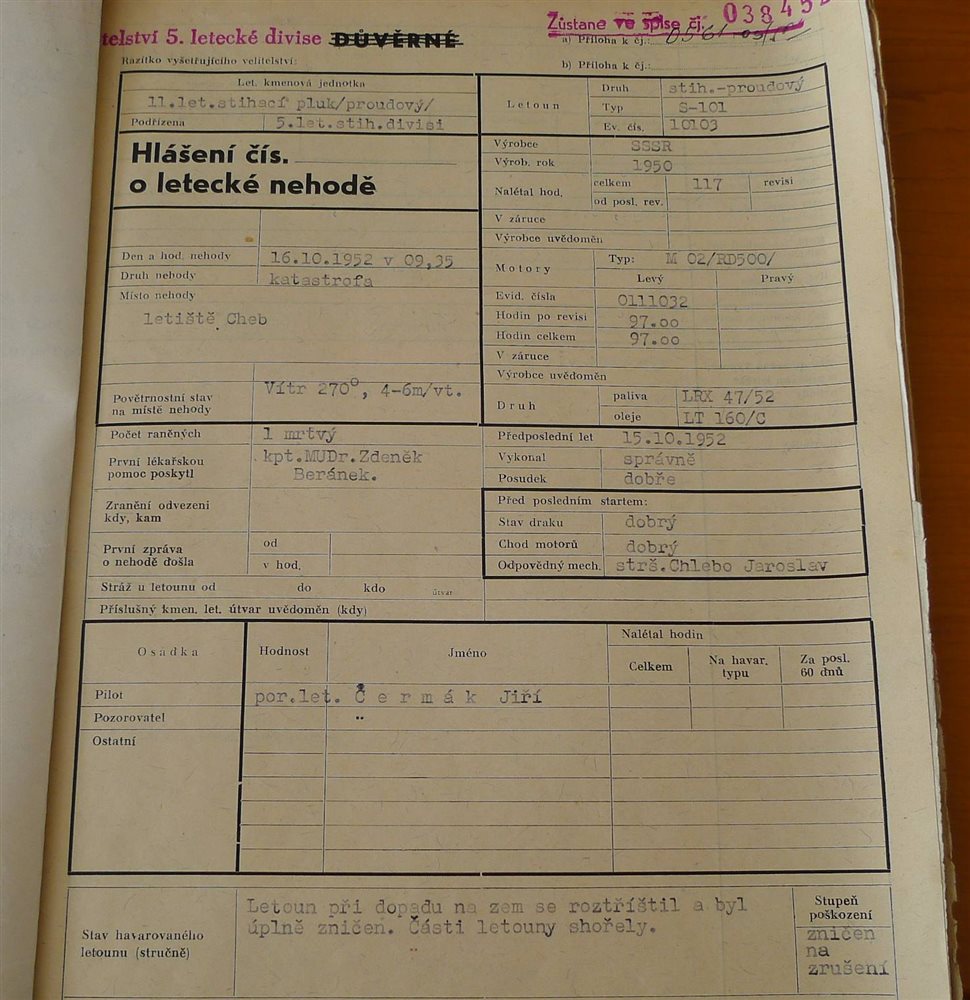 telství 5. letecké divise DŮVĚRNÉ
Zůstane ve spise čj. 03845
a) Příloha k čj.:
Razítko vyšetřujícího velitelství:
b) Příloha k čj.:
Let. kmenová jednotka
11.let.stihací pluk/proudový/
Podřízena 5.let.stih.divisi
Letoun
Druh stih.-proudový
Typ S-101
Ev. čís. 10103
Hlášení čís.
o letecké nehodě
Výrobce SSSR
Výrob. rok 1950
Nalétal hod. celkem 117 revisí
od posl. rev.
V záruce
Výrobce uvědoměn
Den a hod. nehody 16.10.1952 v 09,35
Druh nehody katastrofa
Místo nehody
letiště Cheb
Motory Typ: M 02/RD500/
Levý Pravý
Evid. čísla 0111032
Hodin po revisi 97.00
Hodin celkem 97.00
V záruce
Výrobce uvědoměn
Povětrnostní stav
na místě nehody
Vítr 270°, 4-6m/vt.
Druh
paliva LRX 47/52
oleje LT 160/C
Počet raněných 1 mrtvý
První lékařskou
pomoc poskytl
kpt.MUDr.Zdeněk
Beránek.
Předposlední let 15.10.1952
Vykonal správně
Posudek dobře
Zranění odvezeni
kdy, kam
První zpráva
o nehodě došla
od
v hod.
Před posledním startem:
Stav draku dobrý
Chod motorů dobrý
Odpovědný mech. strš.Chlebo Jaroslav
Stráž u letounu od do kdo útvar
Příslušný kmen. let. útvar uvědoměn (kdy)
Osádka Hodnost Jméno
Nalétal hodin
Celkem
Na havar.
typu
Za posl.
60 dnů
Pilot por.let. Čermák Jiří
Pozorovatel "
Ostatní
Stav havarovaného
letounu (stručně)
Letoun při dopadu na zem se roztříštil a byl
úplně zničen. Části letouny shořely.
Stupeň
poškození
zničen
na
zrušení